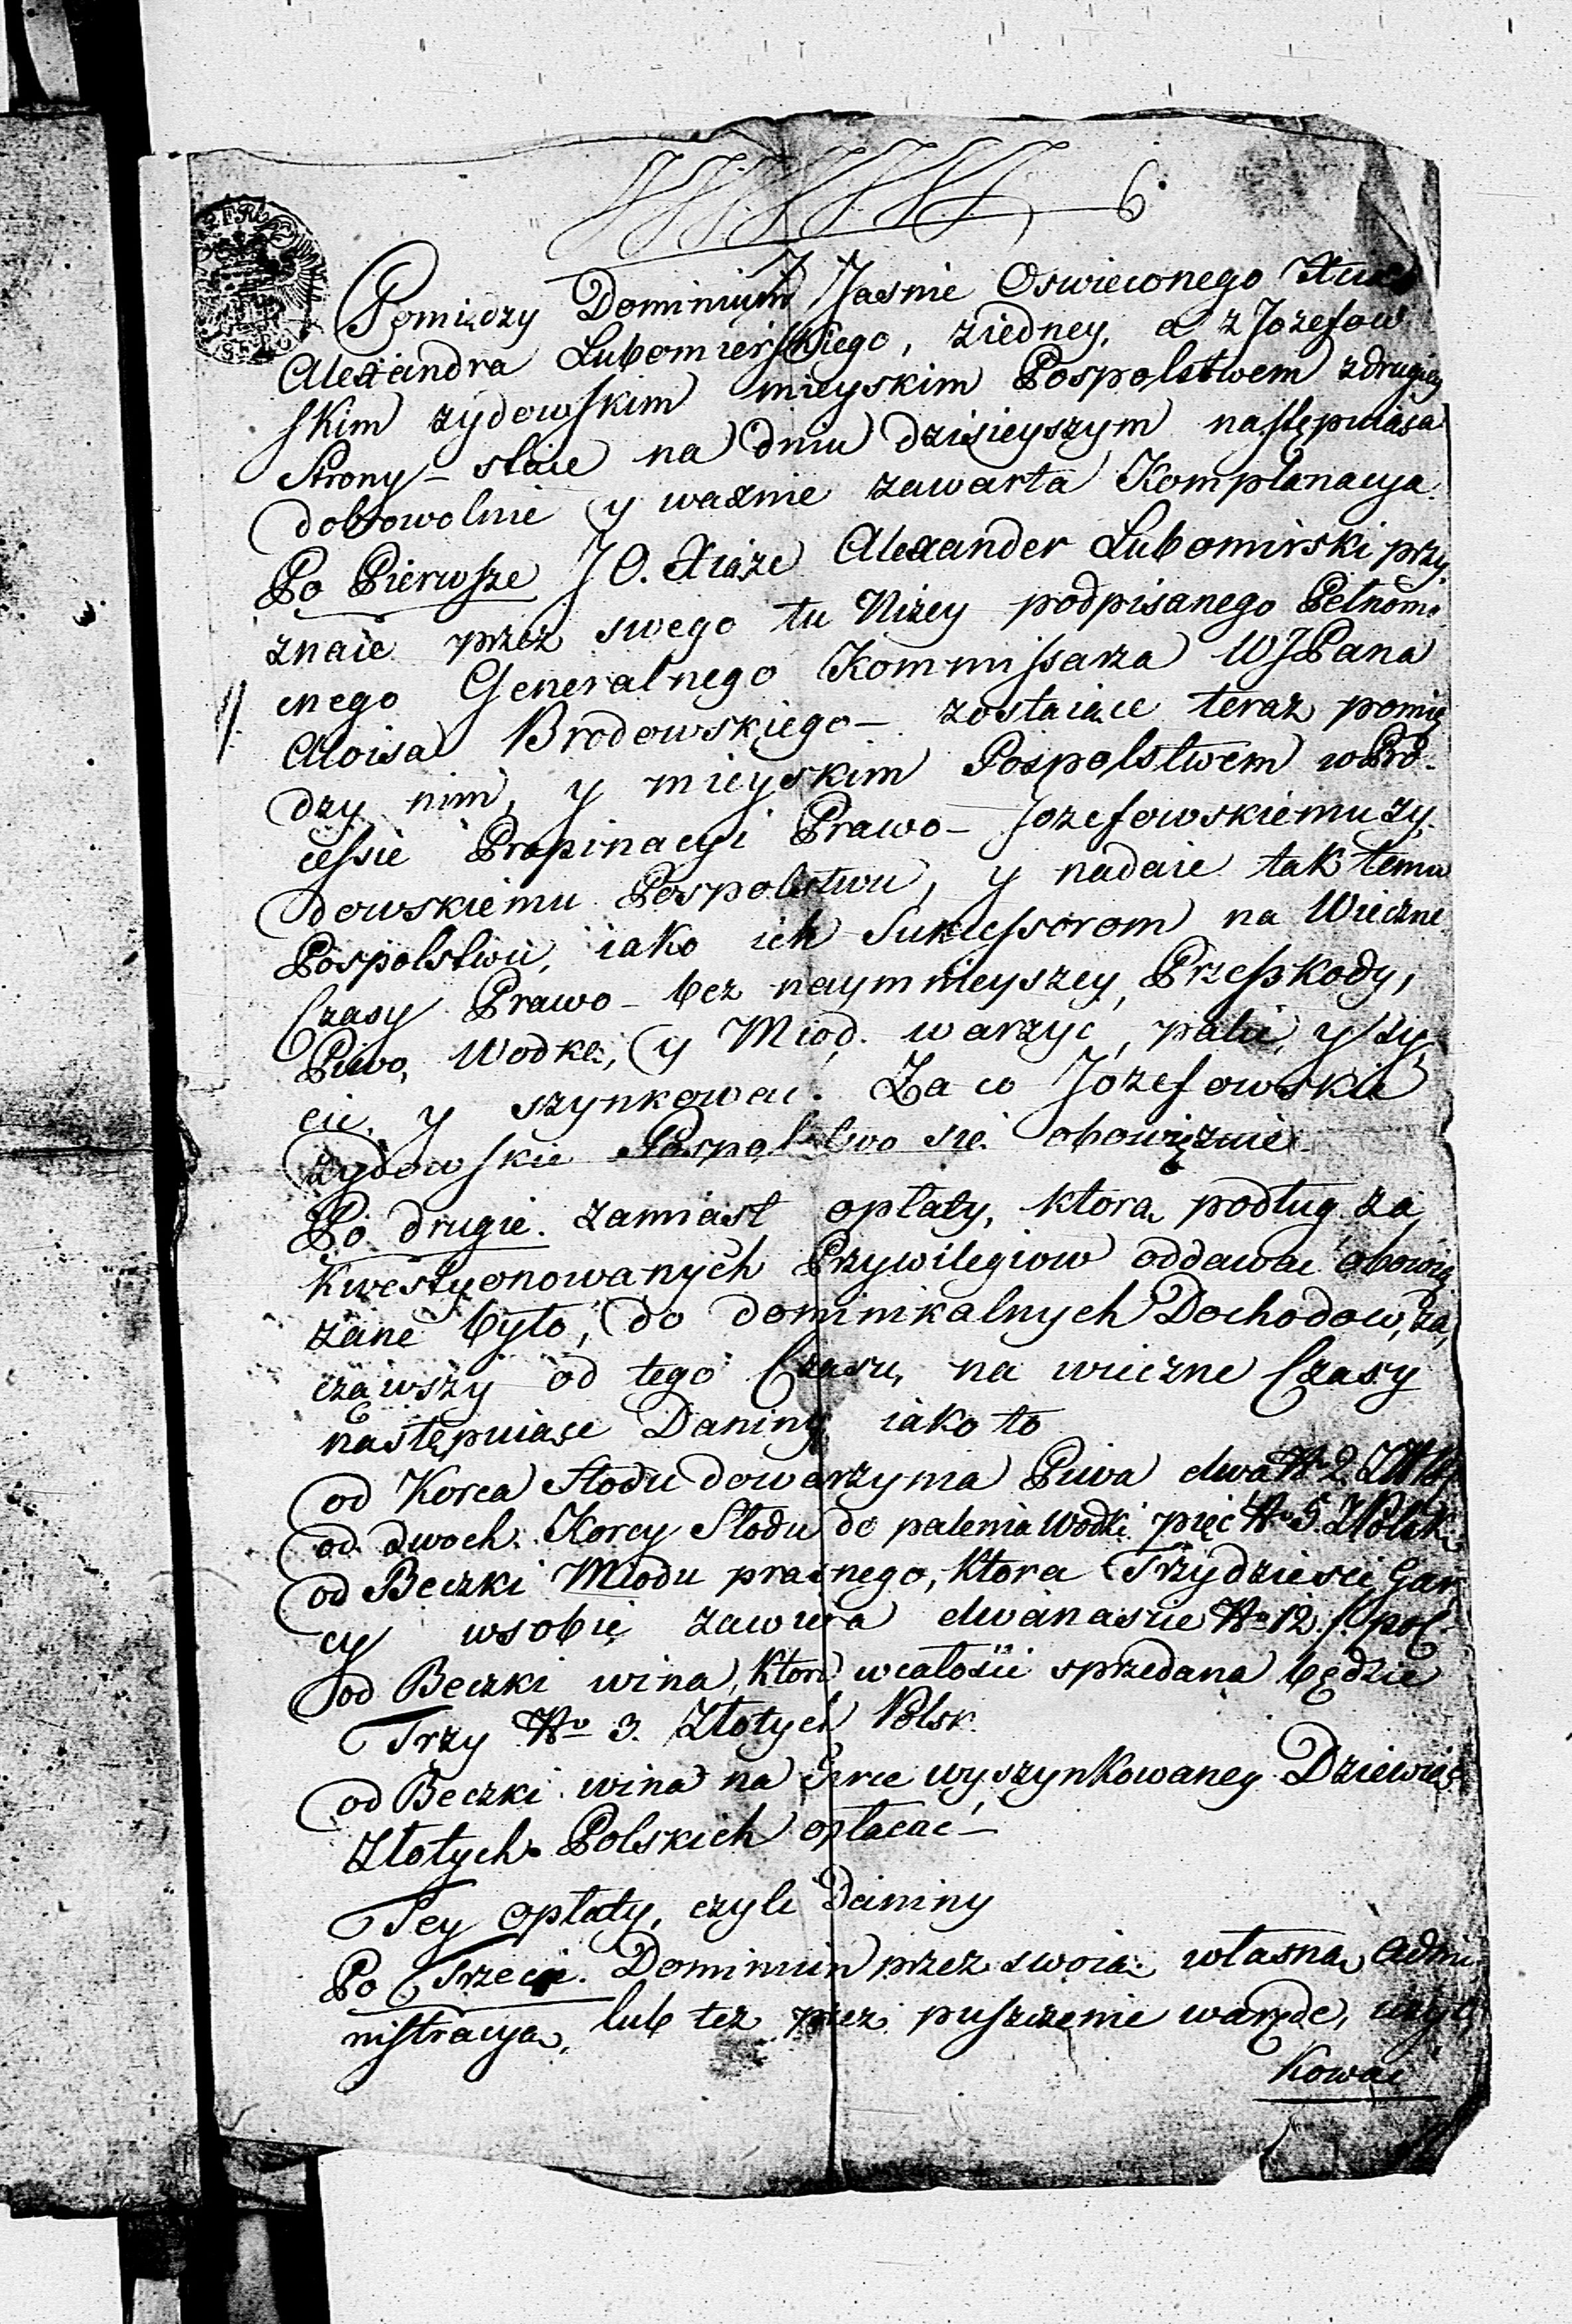 6.
Pomiędzy Dominium Jasnie Oswieconego
Alexandra Lubomierskiego, ziedney, a z Jozefow
skim zydowskim mieyskim Pospolstwem z drugiey
Strony – staie na dniu dzisieyszym następuiąca
dobrowolnie y waznie zawarta Komplanacya.
Po Pierwsze JO. Xiąze Alexander Lubomirski przy,
znaie przez swego tu Nizey podpisanego Pełnomo
cnego Generalnego Kommissarza WJPana
Aloisa Brodowskiego – zostaiące teraz pomię
dzy nim, y mieyskim Pospolstwem w Pro-
cessie Propinacyi Prawo – Jozefowskiemu zy,
dowskiemu Pospolstwu, y nadaie tak temu
Pospolstwu, iako ich Sukcessorom na Wieczne
Czasy Prawo – bez naymnieyszey Przeszkody,
Piwo, Wodkę, y Miod warzyć, palić, y sy,
cić, y szynkować. Za co Jozefowskie
zydowskie Pospolstwo się obowięzuie
Po drugie. zamiast opłaty, ktorą podług za
kwestyonowanych Przywilegiow oddawać obowią
zane było, do dominikalnych Dochodow, za,
cząwszy od tego Czasu, na wieczne Czasy
następuiące Daniny iako to
od Korca Słodu do warzynia Piwa dwa No 2
od dwoch Korcy Słodu do palenia Wodki pięć No 5 ZPolsk
od Beczki Miodu praśnego, ktora Trzydzieści Gar
cy w sobie zawiera dwanaście No 12 f. pol.
od Beczki wina, ktora w całości sprzedana będzie
Trzy No 3. Złotych Polsk.
od Beczki wina na wyszynkowaney Dziewięć
Złotych Polskich opłacać –
Tey opłaty, czyli Daniny
Po Trzecie. Dominium przez swoią własną Admi
nistracyą, lub tez przez puszczenie w arędę, uzyt,
kować